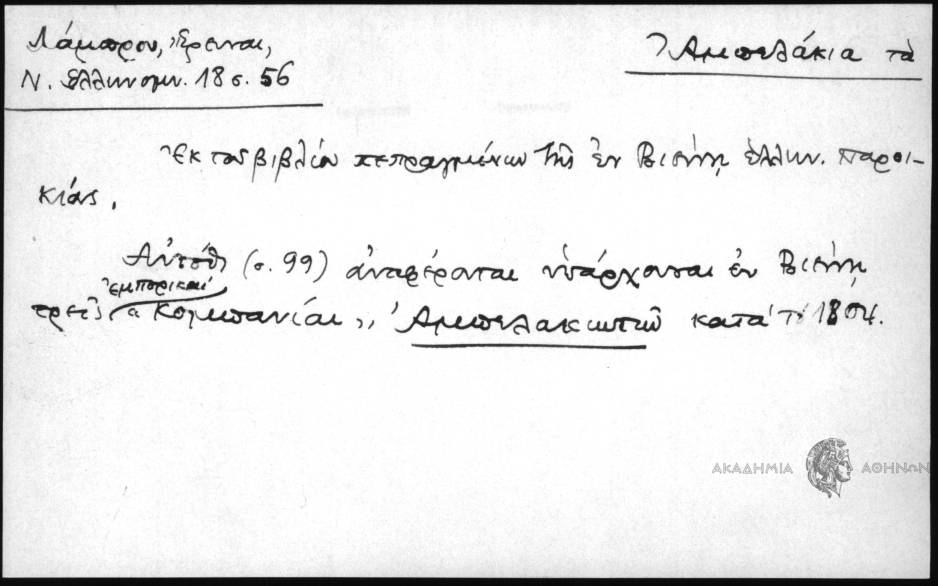 Λάμπρου, Ἔρευναι,
Ν. Ἑλληνομν. 18 σ. 56
Ἀμπελάκια τὰ
Ἐκ τοῦ βιβλίου πεπραγμένων τῆς ἐν Βιέννῃ ἑλλην. παροι-
κίας.
Αὐτόθι (σ. 99) ἀναφέρονται ὑπάρχουσαι ἐν Βιέννῃ
ἐμπορικαὶ
τρεῖς „Κομπανίαι„ Ἀμπελακιωτῶν κατὰ τὸ 1804.
ΑΚΑΔΗΜΙΑ ΑΘΗΝΩΝ